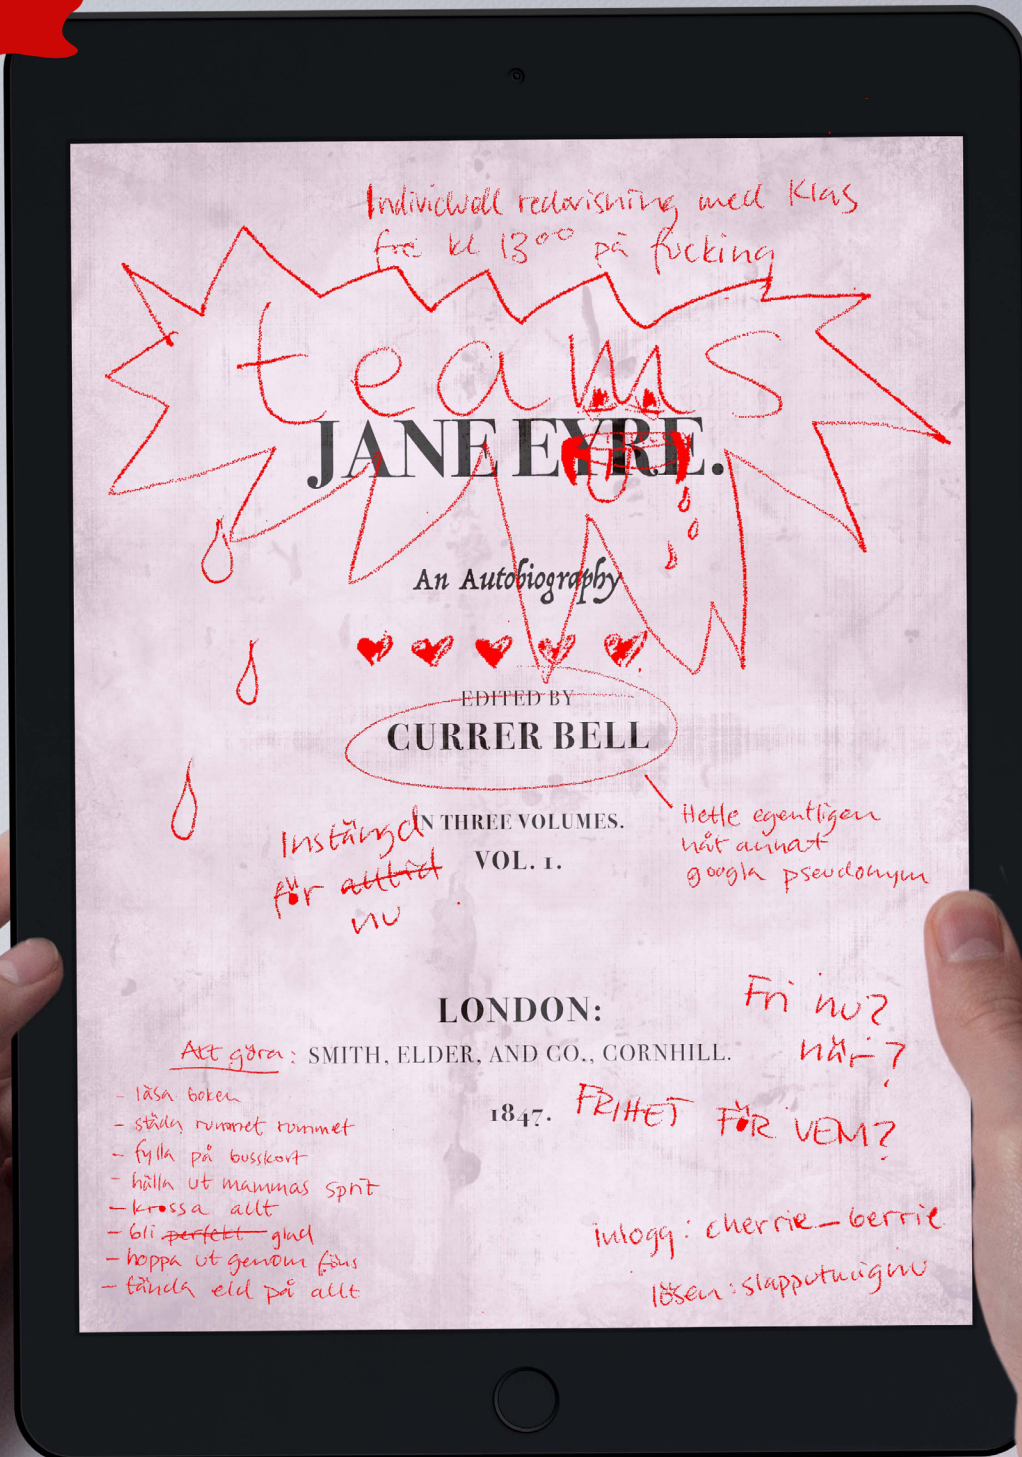 Individuell redovisning med Klas
fre kl 13⁰⁰ på fucking
teams
JANE EYRE.
An Autobiography
EDITED BY
CURRER BELL
IN THREE VOLUMES.
VOL. 1.
Hette egentligen
nåt annat
googla pseudonym
Instängd
för alltid
nu
LONDON:
SMITH, ELDER, AND CO., CORNHILL.
1847.
Fri nu?
när?
FRIHET FÖR VEM?
Att göra:
- läsa boken
- städa rummet rummet
- fylla på busskort
- hälla ut mammas sprit
- krossa allt
- bli perfekt glad
- hoppa ut genom föns
- tända eld på allt
inlogg: cherrie_berrie
lösen: slapputmignu